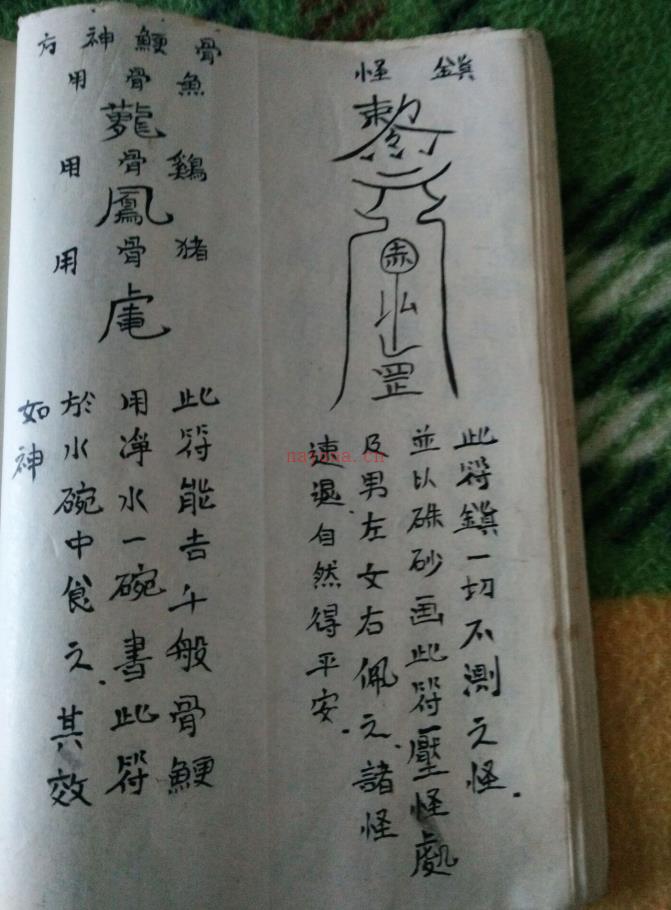 鎮怪
赤
罡
此符鎮一切不測之怪.
並以硃砂画此符壓怪處
及男左女右佩之.諸怪
速退.自然得平安.
骨鯁神方
魚骨用
鷄骨用
鳳
猪骨用
此符能去千般骨鯁
用净水一碗書此符
於水碗中食之.其效
如神
nayona.cn